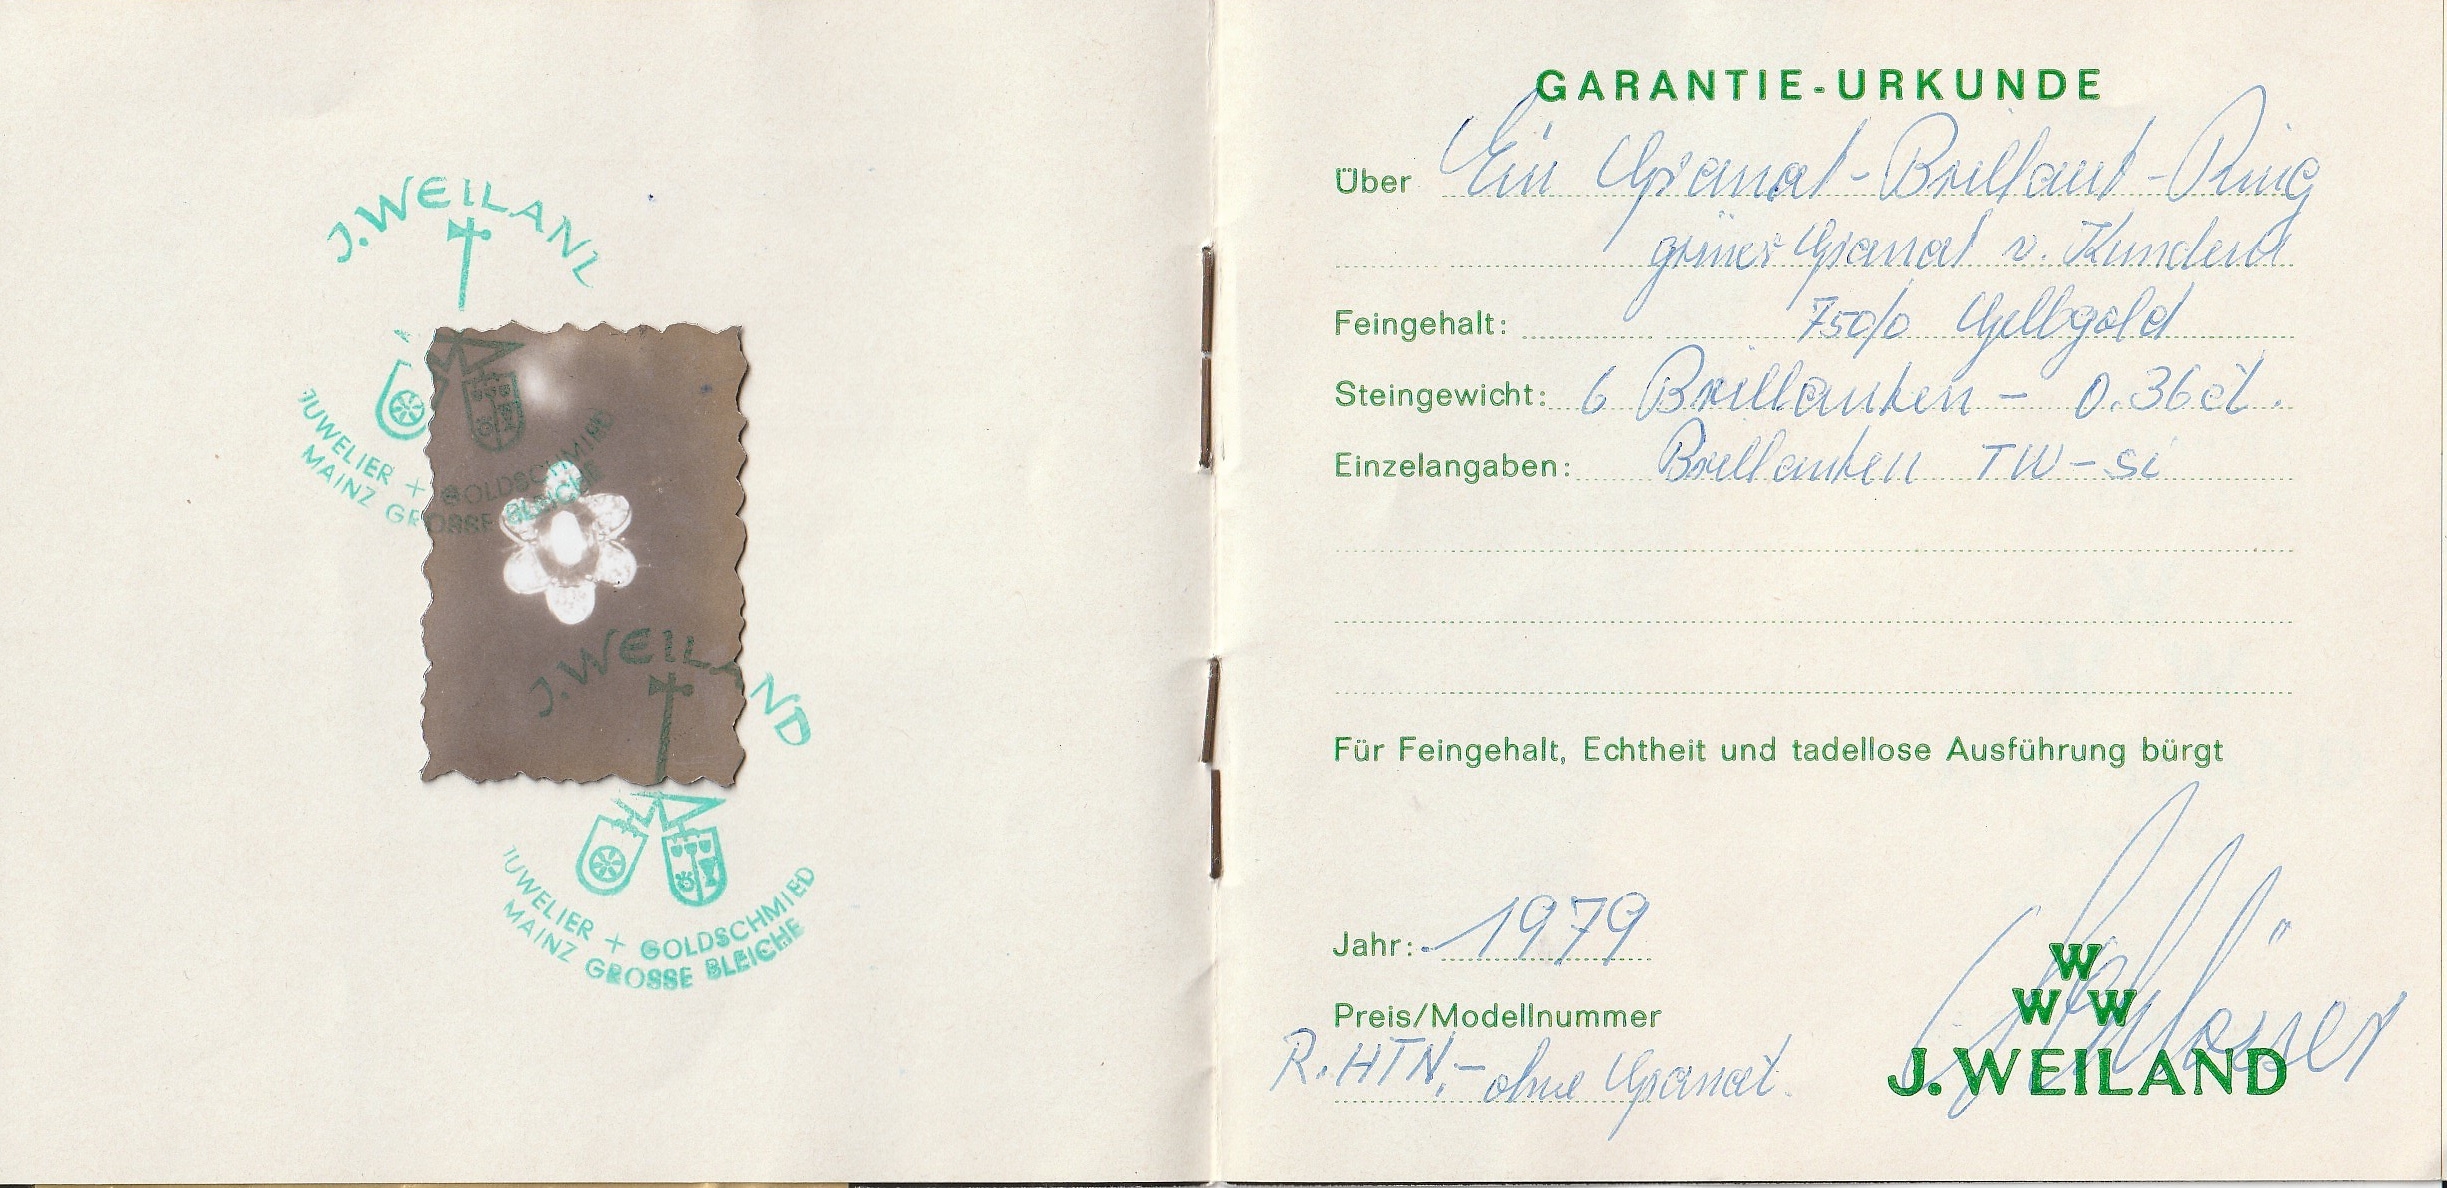 J. WEILAND
JUWELIER + GOLDSCHMIED
MAINZ GROSSE BLEICHE
J. WEILAND
JUWELIER + GOLDSCHMIED
MAINZ GROSSE BLEICHE
GARANTIE-URKUNDE
Über Ein Granat-Brillant-Ring
grüner Granat v. Kundend
Feingehalt: 750/0 Gelbgold
Steingewicht: 6 Brillanten - 0.36 ct.
Einzelangaben: Brillanten TW-si
Für Feingehalt, Echtheit und tadellose Ausführung bürgt
Jahr: 1979
Preis/Modellnummer
R.HTN.- ohne Granat.
W
W W
J. WEILAND